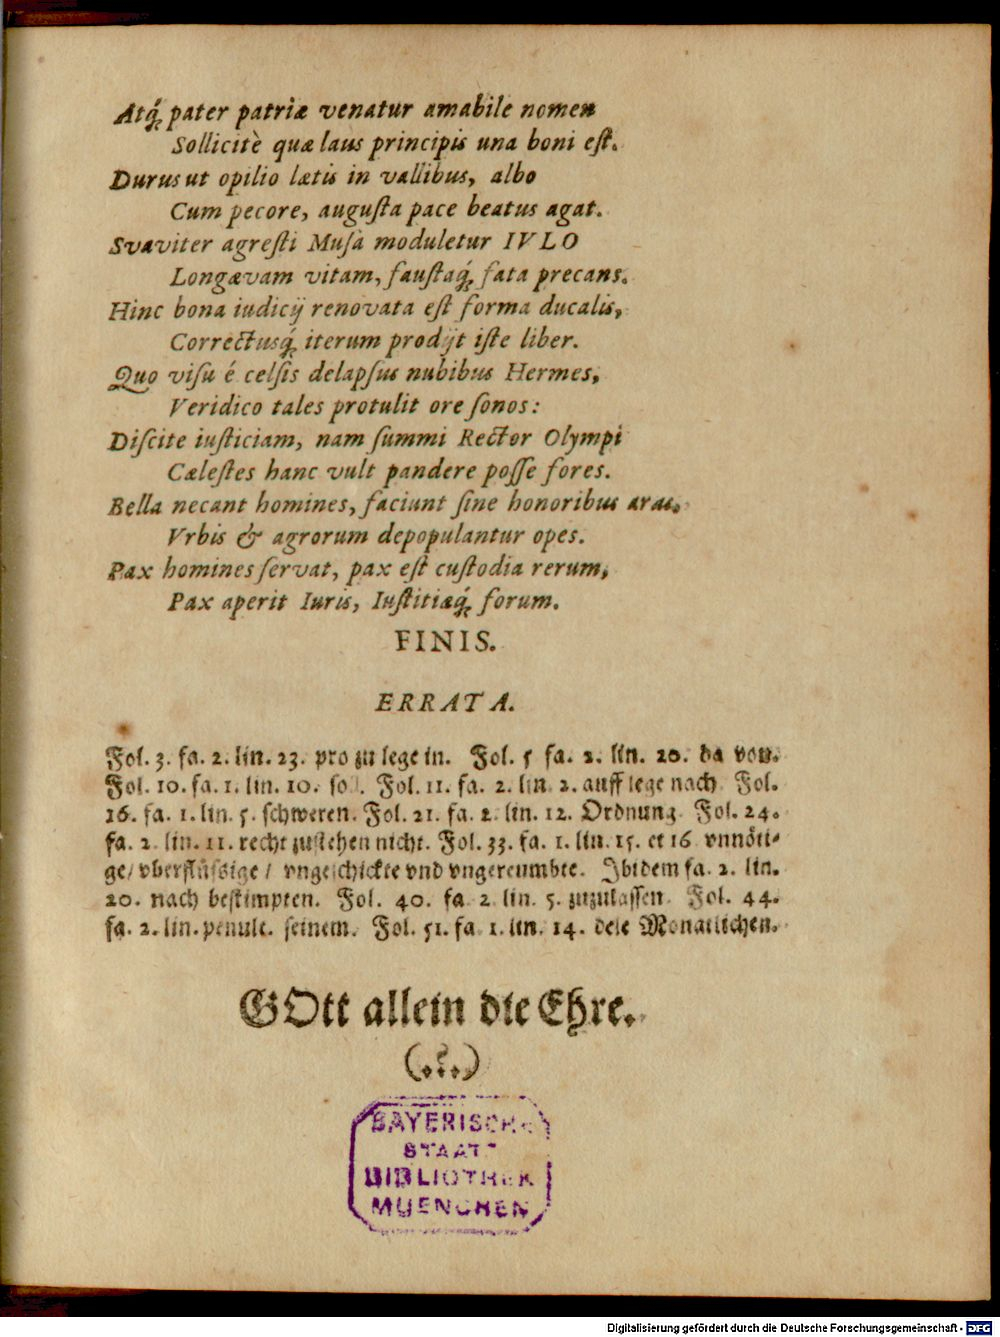 Atq́; pater patriæ venatur amabile nomen
Sollicitè quæ laus principis una boni eſt.
Durus ut opilio lætis in vallibus, albo
Cum pecore, auguſta pace beatus agat.
Svaviter agreſti Muſà moduletur IVLO
Longævam vitam, fauſtaq́; fata precans.
Hinc bona iudicij renovata eſt forma ducalis,
Correctusq́; iterum prodijt iſte liber.
Quo viſu é celſis delapſus nubibus Hermes,
Veridico tales protulit ore ſonos:
Diſcite iuſticiam, nam ſummi Rector Olympi
Cæleſtes hanc vult pandere poſſe fores.
Bella necant homines, faciunt ſine honoribus aras.
Vrbis & agrorum depopulantur opes.
Pax homines ſervat, pax eſt cuſtodia rerum,
Pax aperit Iuris, Iuſtitiæq́; forum.
FINIS.
ERRATA.
Fol. 3. fa. 2. lin. 23. pro zu lege in. Fol. 5 fa. 2. lin. 20. da von.
Fol. 10. fa. 1. lin. 10. Fol. 11. fa. 2. lin. 2. auff lege nach Fol.
16. fa. 1. lin. 5. ſchweren. Fol. 21. fa. 2. lin. 12. Ordnung. Fol. 24.
fa. 2. lin. 11. recht zuſtehen nicht. Fol. 33. fa. 1. lin. 15. et 16 vnnöti-
ge/ vberflüſſige/ vngeſchickte vnd vngereumbte. Ibidem fa. 2. lin.
20. nach beſtimpten. Fol. 40. fa 2 lin. 5. zuzulaſſen. Fol. 44.
fa. 2. lin. penult. ſeinem. Fol. 51. fa. 1. lin. 14. dele Monatlichen.
GOtt allein die Ehre.
BAYERISCHE
STAATS
BIBLIOTHEK
MUENCHEN
Digitalisierung gefördert durch die Deutsche Forschungsgemeinschaft - DFG